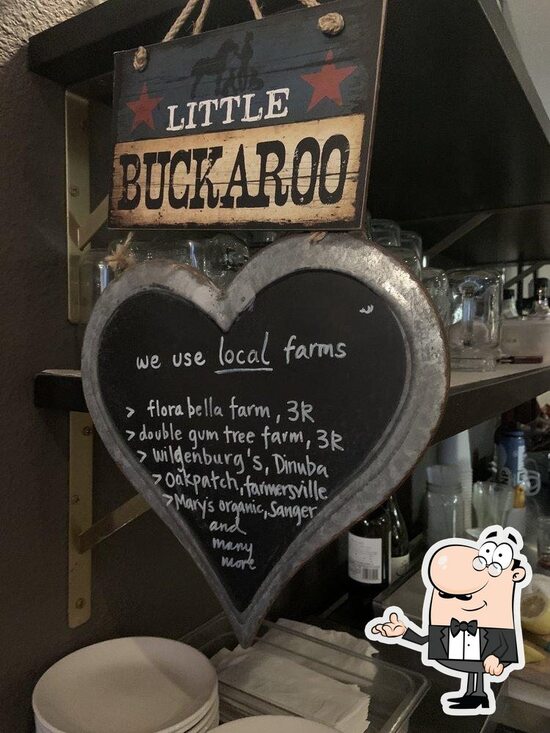 LITTLE
BUCKAROO
we use local farms
> flora bella farm, 3R
> double gum tree farm, 3R
> wildenburg's, Dinuba
> Oakpatch, farmersville
> Mary's organic, Sanger
and
many
more